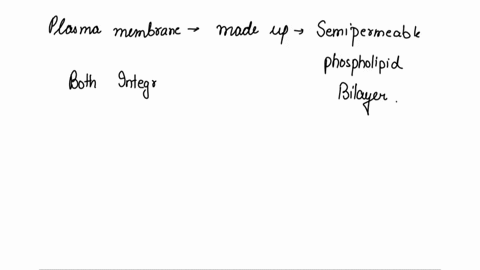 Plasma membrane → made up → Semipermeable
phospholipid
Both Integr
Bilayer.